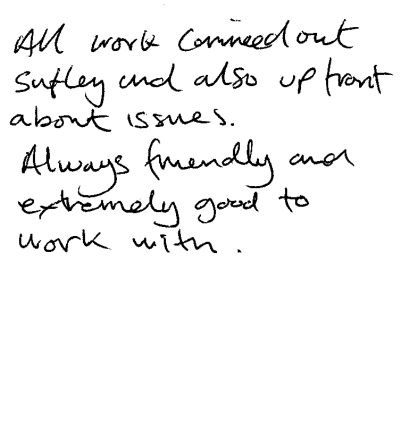 All work carried out
safley and also upfront
about issues.
Always friendly and
extremely good to
work with.